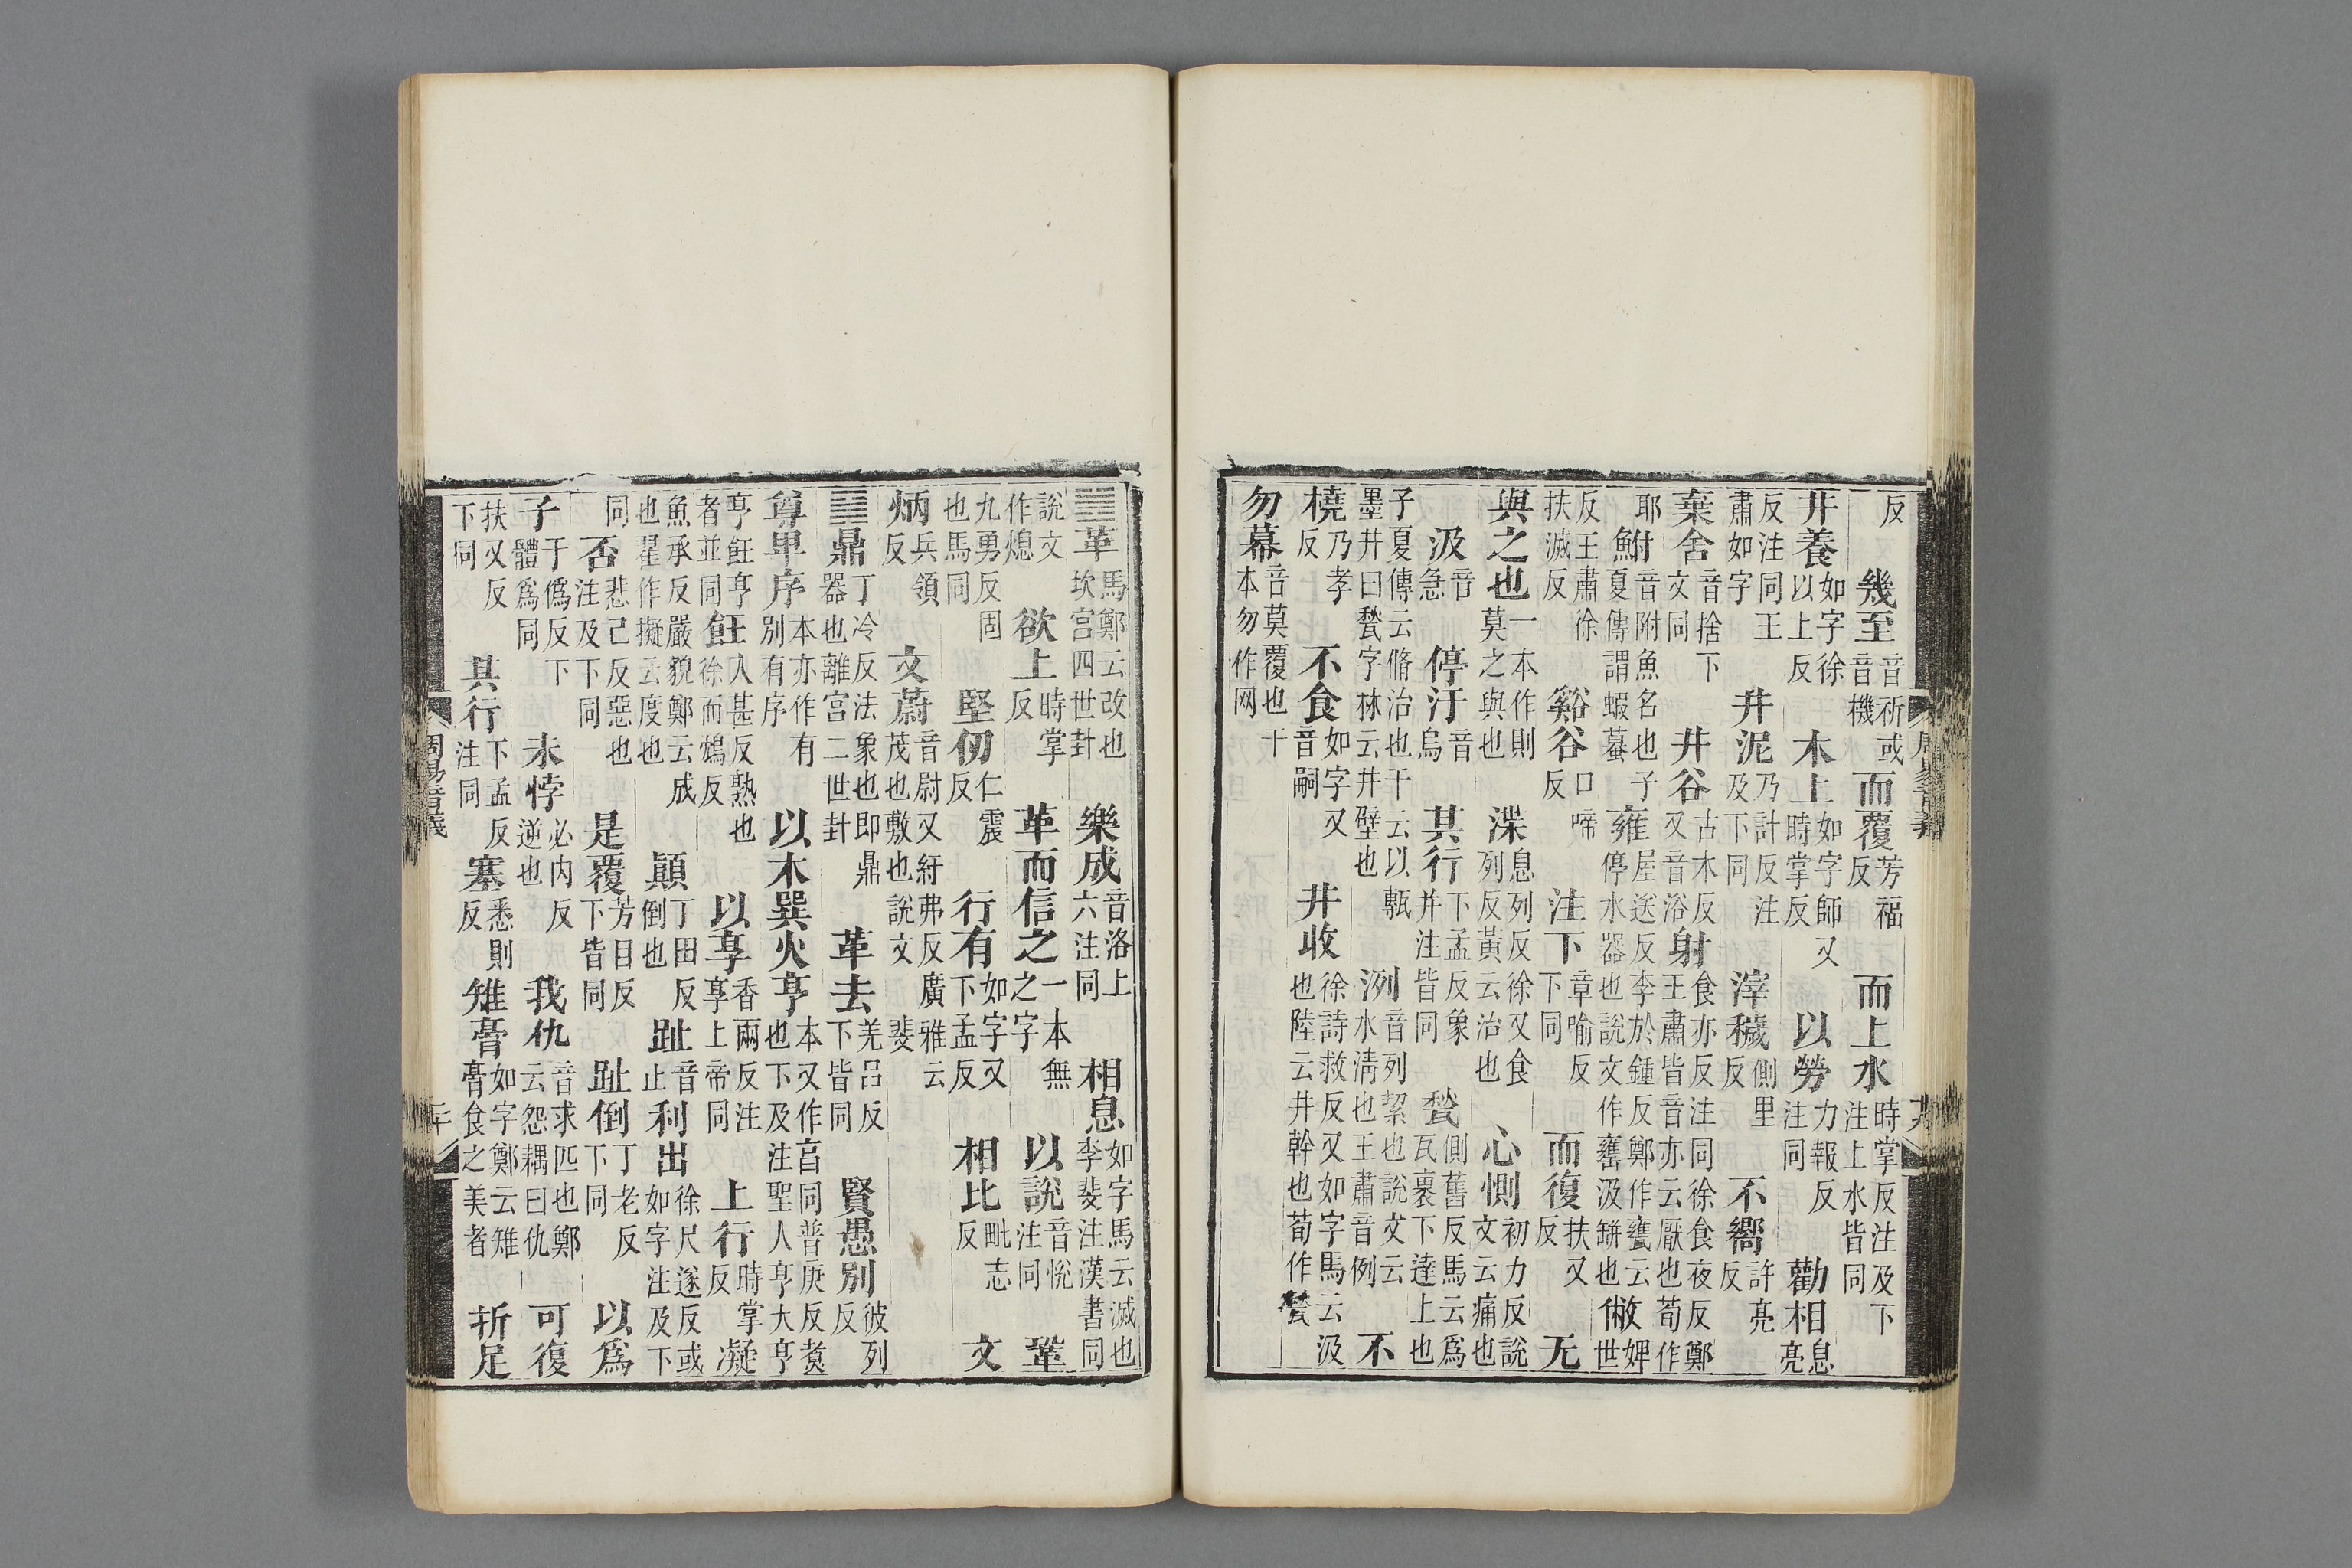 反 幾至音祈或音機 而覆芳福反 而上水時掌反注及下注上水皆同
井養如字徐以上反 木上如字師又時掌反 以勞力報反注同 勸相息亮
反注同王肅如字 井泥乃計反注及下同 滓穢側里反 不嚮許亮反
棄舍音捨下文同 井谷古木反又音浴 射食亦反注同徐食夜反鄭王肅皆音亦云厭也荀作
耶 鮒音附魚名也子夏傳謂蝦蟇 雍屋送反李於鍾反鄭作甕云停水器也說文作罋汲缾也 敝婢世
反王肅徐扶滅反 谿谷口啼反 注下章喻反下同 而復扶又反 无
與之也一本作則莫之與也 渫息列反徐又食列反黃云治也 心惻初力反說文云痛也
汲音急 停汙音烏 其行下孟反象并注皆同 甃側舊反馬云爲瓦裏下達上也
子夏傳云脩治也干云以甎墨井曰甃字林云井壁也 洌音列絜也說文云水清也王肅音例 不
橈乃孝反 不食如字又音嗣 井收徐詩救反又如字馬云汲也陸云井幹也荀作甃
勿幕音莫覆也干本勿作网
䷰革馬鄭云改也坎宮四世卦 樂成音洛上六注同 相息如字馬云滅也李斐注漢書同
說文作熄 欲上時掌反 革而信之一本無之字 以說音悅注同 鞏
九勇反固也馬同 堅仞仁震反 行有如字又下孟反 相比毗志反 文
炳兵領反 文蔚音尉又紆弗反廣雅云茂也敷也說文斐
䷱鼎丁冷反法象也即鼎器也離宮二世卦 革去羌呂反下皆同 賢愚別彼列反
尊卑序本亦作有別有序 以木巽火亨本又作亯同普庚反煑也下及注聖人亨大亨
亨飪亨者並同 飪入甚反熟也徐而鴆反 以享香兩反注享上帝同 上行時掌反 凝
魚承反嚴貌鄭云成也翟作擬云度也 顛丁田反倒也 趾音止 利出徐尺遂反或如字注及下
同 否悲己反惡也注及下同 是覆芳目反下皆同 趾倒丁老反下同 以爲
子于僞反下體爲同 未悖必内反逆也 我仇音求匹也鄭云怨耦曰仇 可復
扶又反下同 其行下孟反注同 塞悉則反 雉膏如字鄭云雉膏食之美者 折足
周易音義